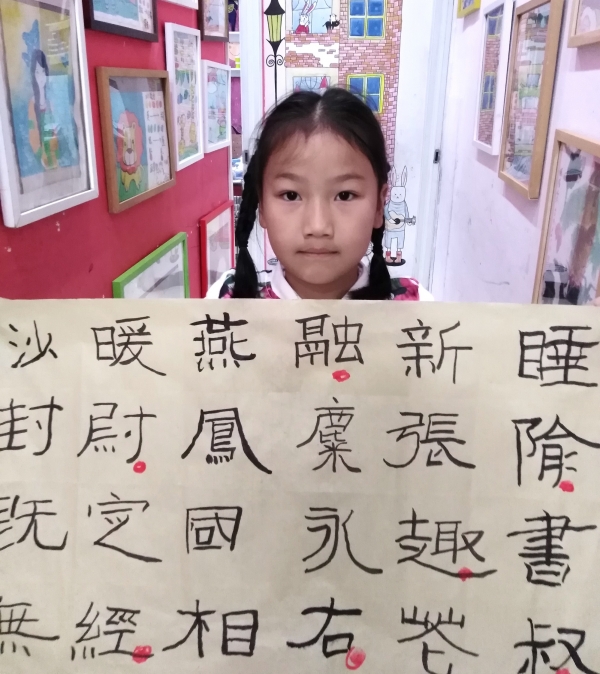 睡隃書叔
新張趣花
融麋永右
燕鳳國相
暖尉定經
沙封既無